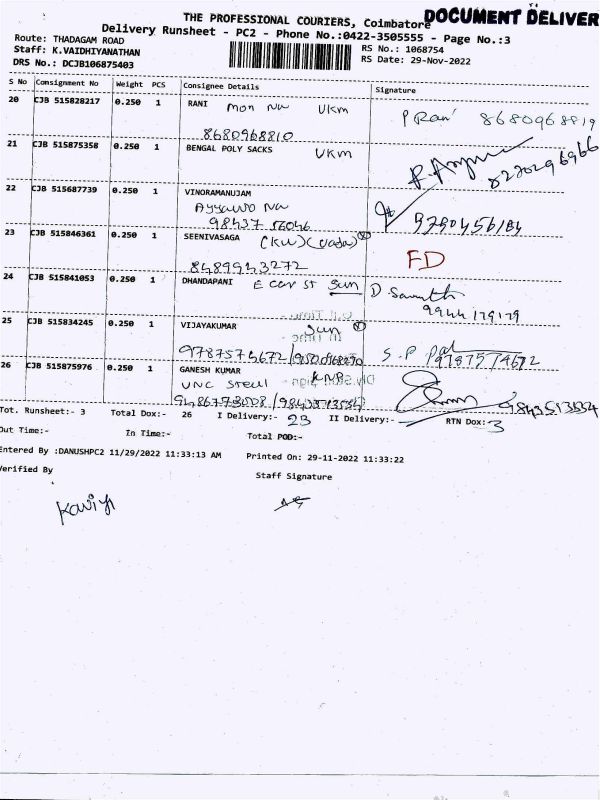 THE PROFESSIONAL COURIERS, Coimbatore DOCUMENT DELIVER
Delivery Runsheet - PC2 - Phone No.:0422-3505555 - Page No.:3
Route: THADAGAM ROAD
RS No.: 1068754
Staff: K.VAIDHIYANATHAN
RS Date: 29-Nov-2022
DRS No.: DCJB106875403
S No Consignment No Weight PCS Consignee Details Signature
20 CJB 515828217 0.250 1 RANI mon Nu Ukm P Rani 8680968819
8680968810
21 CJB 515875358 0.250 1 BENGAL POLY SACKS Ukm 8220296966
22 CJB 515687739 0.250 1 VINORAMANUJAM
98437 56046
23 CJB 515846361 0.250 1 SEENIVASAGA FD
8489943272
24 CJB 515841053 0.250 1 DHANDAPANI E car st Sun
9944179179
25 CJB 515834245 0.250 1 VIJAYAKUMAR Sun
S.P
26 CJB 515875976 0.250 1 GANESH KUMAR KNP
UNC Steel
Tot. Runsheet:- 3 Total Dox:- 26 I Delivery:- 23 II Delivery:- RTN Dox: 3
Out Time:- In Time:- Total POD:-
Entered By :DANUSHPC2 11/29/2022 11:33:13 AM Printed On: 29-11-2022 11:33:22
Verified By Staff Signature